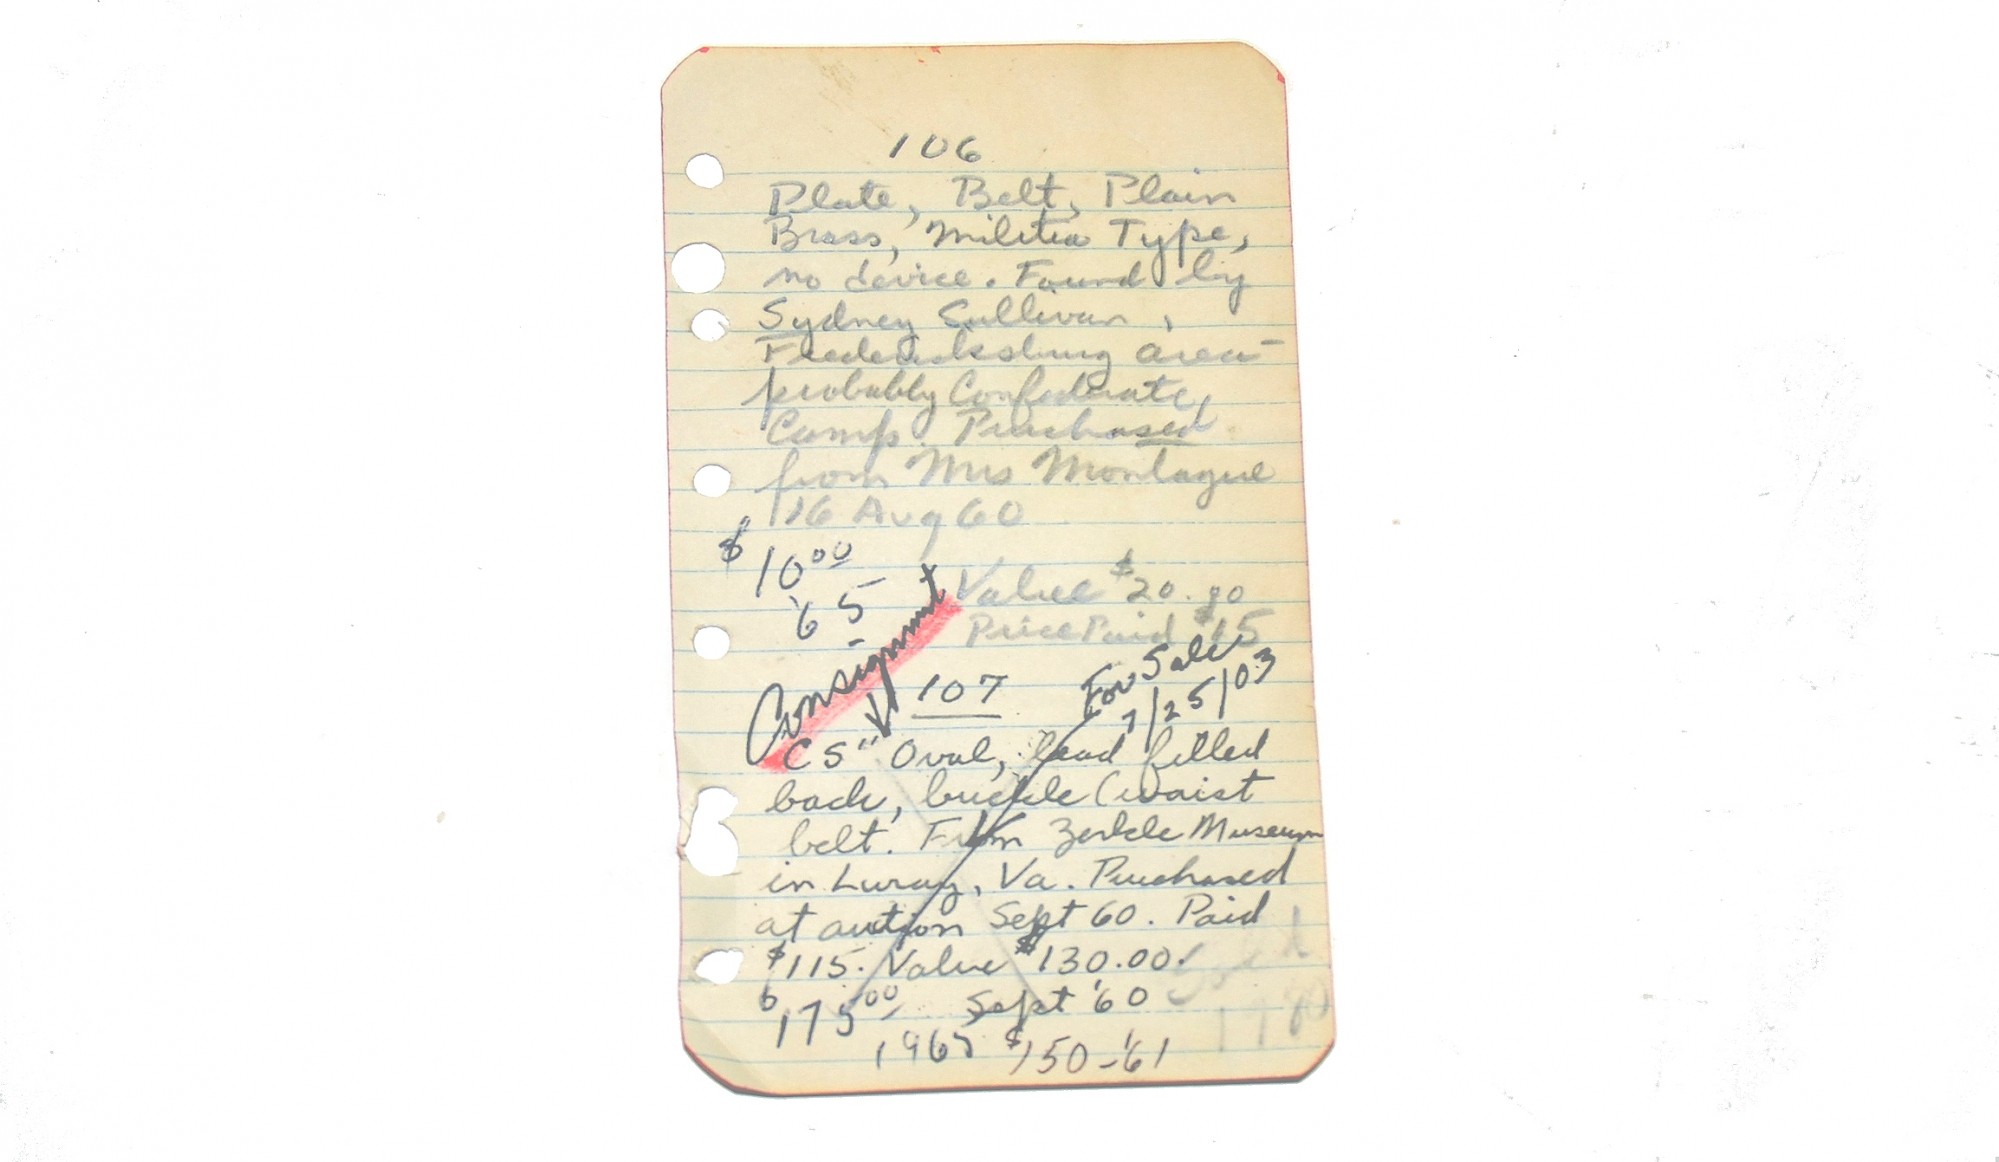 106
Plate, Belt, Plain
Brass, Militia Type,
no device. Found by
Sydney Sullivan,
Fredericksburg area -
probably Confederate
Camp. Purchased
from Mrs Montague
16 Aug 60
$10.00
'65
Value $20.00
Price Paid $15
Consignment
107
For Sale
7/25/03
CS" Oval, lead filled
back, buckle (waist
belt. From Zerkle Museum
in Luray, Va. Purchased
at auction Sept 60. Paid
$115. Value $130.00.
$175.00 Sept '60
1965 $150 - '61
Sold
1980